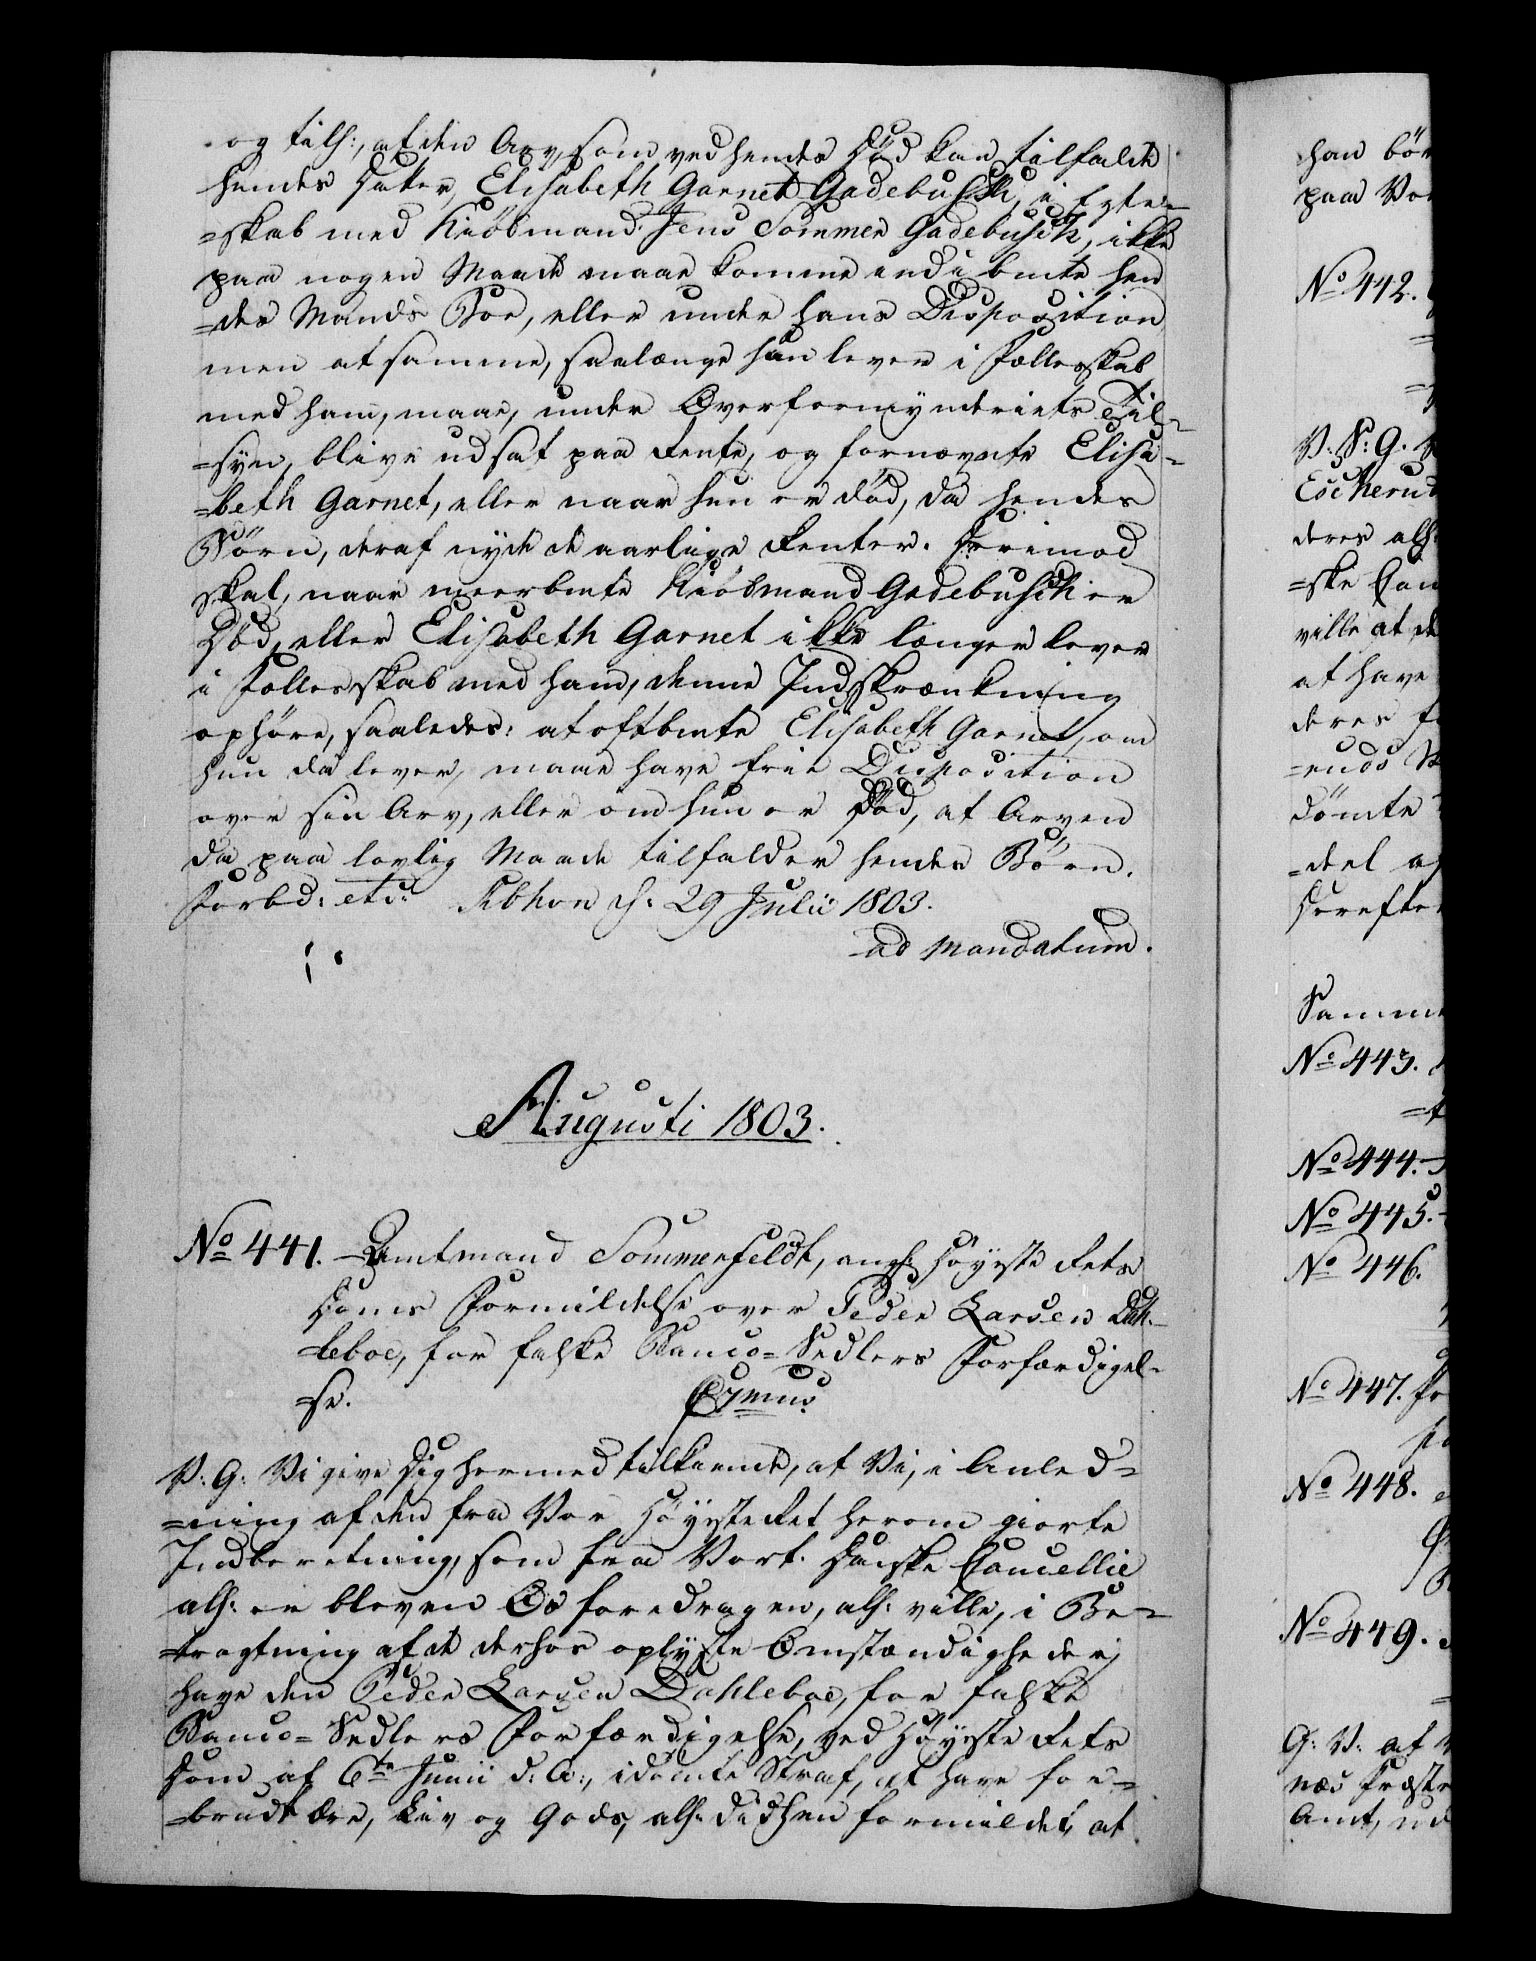 og till:, at den Arv, som ved hendes Død kan tilfalde
hendes Datter, Elisabeth Garnet Gadebusch, i Egte=
=skab med Kiøbmand Jens Sommer Gadebusch, ikke
paa nogen Maade maae komme ind i bmte hen
=des Mands Boe, eller under hans Disposition
men at samme, saalænge hun lever i Fællesskab
med ham, maae, under Overformynderiets Til=
=syn, blive udsat paa Rente, og fornævnte Elisa=
=beth Garnet, eller naar hun er død, da hendes
Børn, deraf nyde de aarlige Renter. Herimod
skal, naar meerbmte Kiöbmand Gadebusch er
Død, eller Elisabeth Garnet ikke længer lever
i Fællesskab med ham, denne Indskrænkning
ophöre, saaledes: at oftbmte Elisabeth Garnet, om
hun da lever, maae have frie Disposition
over sin Arv, eller om hun er Død, at Arven
da paa lovlig Maade tilfalder hendes Børn.
Forbd: etc: Kbhvn d: 29 Julii 1803.
ad Mandatum.
Augusti 1803.
No 441. Amtmand Sommerfeldt, ang: Høyeste Rets
Doms Formildelse over Peder Larsen Dah=
=leboe, for falske Banco=Sedlers Forfærdigel=
=se.
V: G: Vi give Dig hermed tilkiende, at Vi, i Anled=
=ning af den fra Vor Høyeste Ret herom giorte
Indberetning, som fra Vort Danske Cancellie
all: er bleven Os foredragen, all: ville, i Be=
=tragtning af de derhos oplyste Omstændigheder,
have den Peder Larsen Dahleboe, for falske
Banco=Sedlers Forfærdigelse, ved Høyeste Rets
Dom af 6te Junii d: A:, idømte Straf, at have for=
=brudt Ære, Liv og Gods, all: didhen formildet, at
han bör
paa Vor
No 442.
V: S: G.
deres all:
=ske Can
ville at de
at have
deres
=ends
dömte
=deel
Herefter
Samme
No 443.
No 444.
No 445.
No 446.
No 447.
No 448.
No 449.
G: V: af
næs Præste
Amt, ud